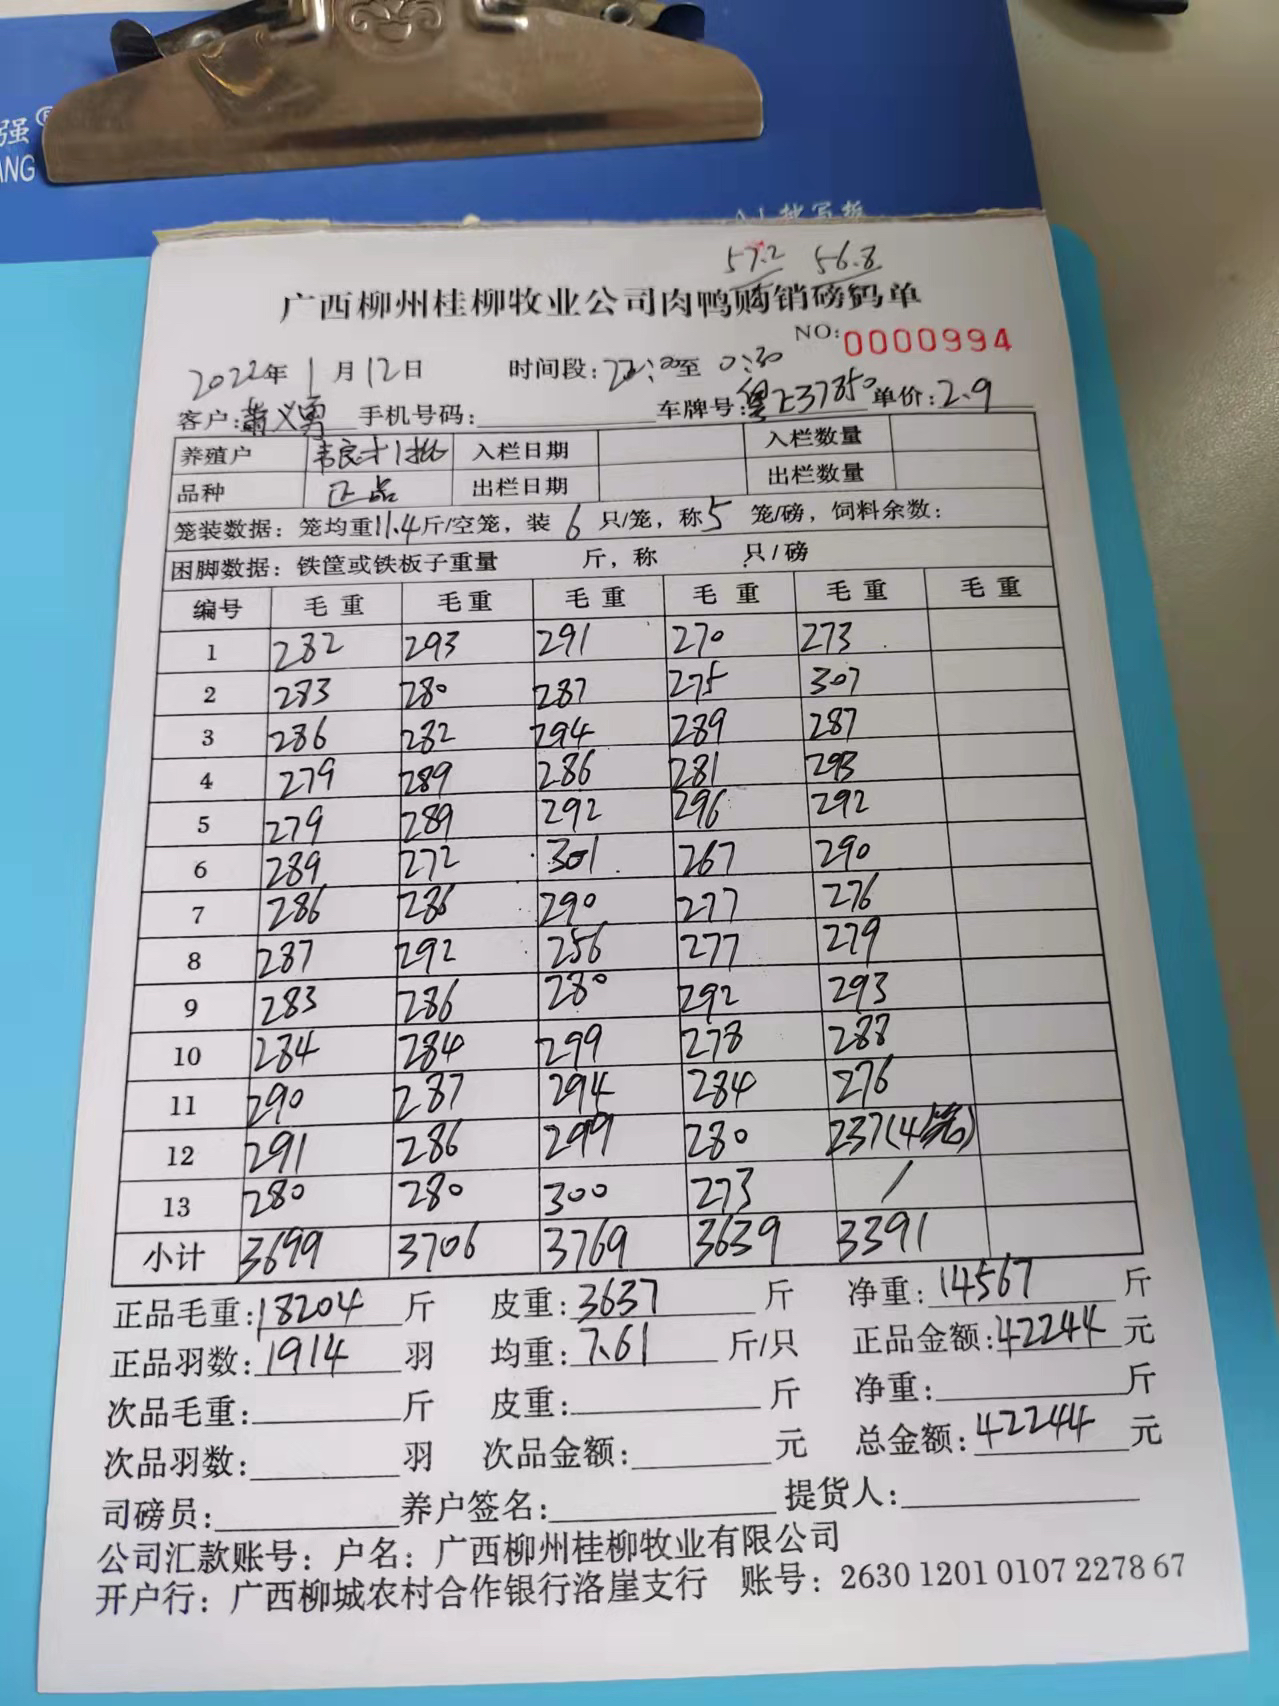 强®
ANG
57.2 56.8
广西柳州桂柳牧业公司肉鸭购销磅码单
NO:0000994
2022年1月12日 时间段:22:00至0:30
客户: 义勇 手机号码: 车牌号:粤L37850 单价:2.9
养殖户 韦良才1批 入栏日期 入栏数量
品种 正品 出栏日期 出栏数量
笼装数据:笼均重11.4斤/空笼,装6只/笼,称5笼/磅,饲料余数:
困脚数据:铁筐或铁板子重量 斤,称 只/磅
编号 毛重 毛重 毛重 毛重 毛重 毛重
1 282 293 291 270 273
2 283 280 287 275 307
3 286 282 294 289 287
4 279 289 286 281 293
5 279 289 292 296 292
6 289 272 301 267 290
7 286 286 290 277 276
8 287 292 256 277 279
9 283 286 280 292 293
10 284 284 299 278 288
11 290 287 294 284 276
12 291 286 299 280 237(4笼)
13 280 280 300 273 /
小计 3699 3706 3769 3639 3391
正品毛重:18204斤 皮重:3637斤 净重:14567斤
正品羽数:1914羽 均重:7.61斤/只 正品金额:42244元
次品毛重: 斤 皮重: 斤 净重: 斤
次品羽数: 羽 次品金额: 元 总金额:42244元
司磅员: 养户签名: 提货人:
公司汇款账号:户名:广西柳州桂柳牧业有限公司
开户行:广西柳城农村合作银行洛崖支行 账号:2630 1201 0107 2278 67